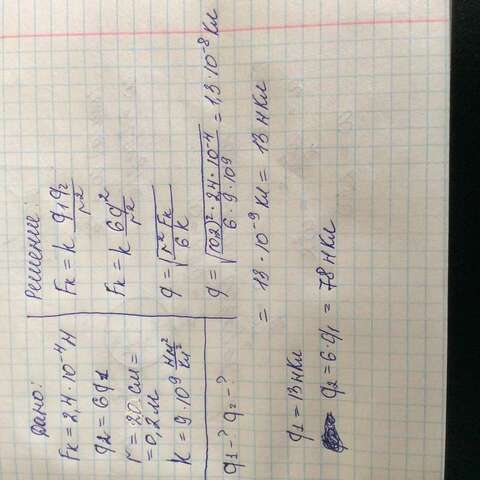 Дано:
Fк = 2,4 · 10⁻⁴ Н
q2 = 6q1
r = 20 см =
= 0,2 м
k = 9 · 10⁹ Нм²/Кл²
q1 - ? q2 - ?
Решение:
Fк = k q1q2/r²
Fк = k 6q²/r²
q = √(r² Fк/6k)
q = √((0,2)² · 2,4 · 10⁻⁴/6 · 9 · 10⁹) = 1,3 · 10⁻⁸ Кл
= 13 · 10⁻⁹ Кл = 13 нКл
q1 = 13 нКл
q2 = 6 · q1 = 78 нКл